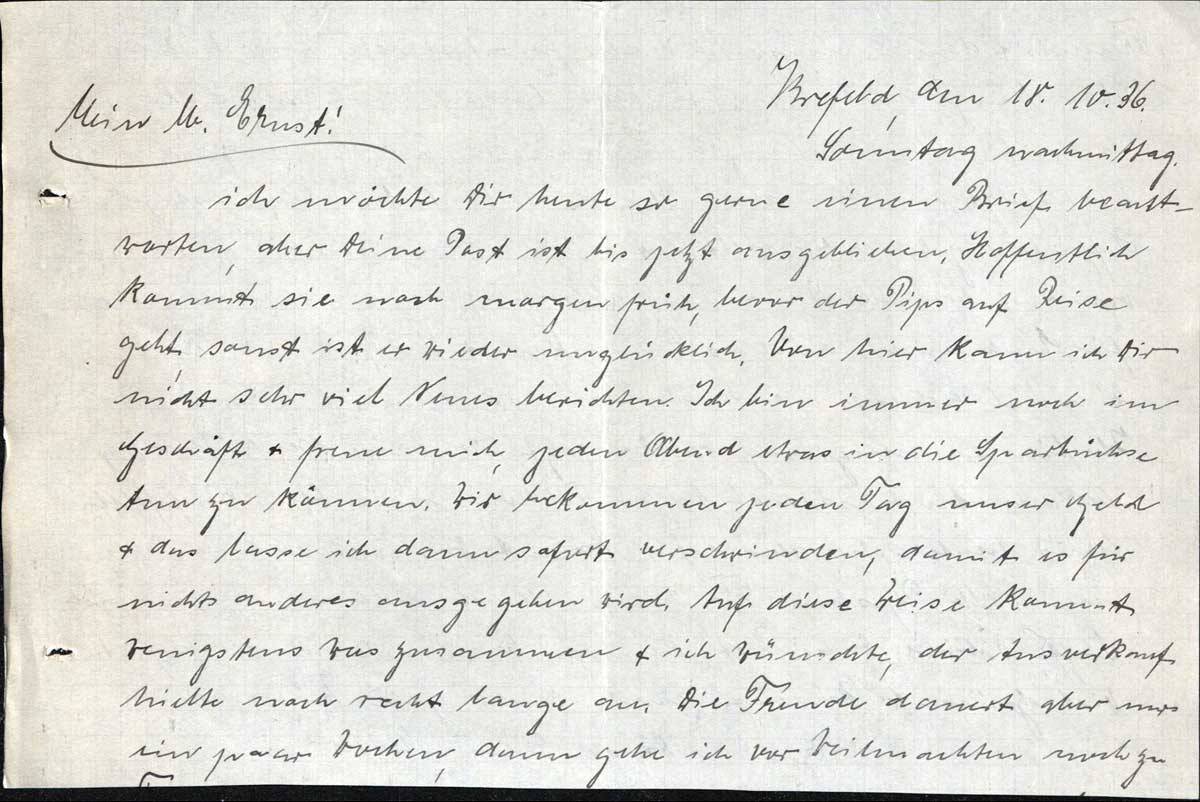 Krefeld, den 18. 10. 36.
Mein lb. Ernst!
Sonntag nachmittag.
ich möchte Dir heute so gerne einen Brief beant-
worten, aber Deine Post ist bis jetzt ausgeblieben. Hoffentlich
kommt sie noch morgen früh, bevor der Pips auf Reise
geht, sonst ist er wieder unglücklich. Von hier kann ich Dir
nicht sehr viel Neues berichten. Ich bin immer noch im
Geschäft & freue mich, jeden Abend etwas in die Sparbüchse
tun zu können. Wir bekommen jeden Tag unser Geld
& das lasse ich dann sofort verschwinden, damit es für
nichts anderes ausgegeben wird. Auf diese Weise kommt
wenigstens was zusammen & ich wünschte, der Ausverkauf
hielte noch recht lange an. Die Freude dauert aber nur
ein paar Wochen, dann gehe ich vor Weihnachten noch zu